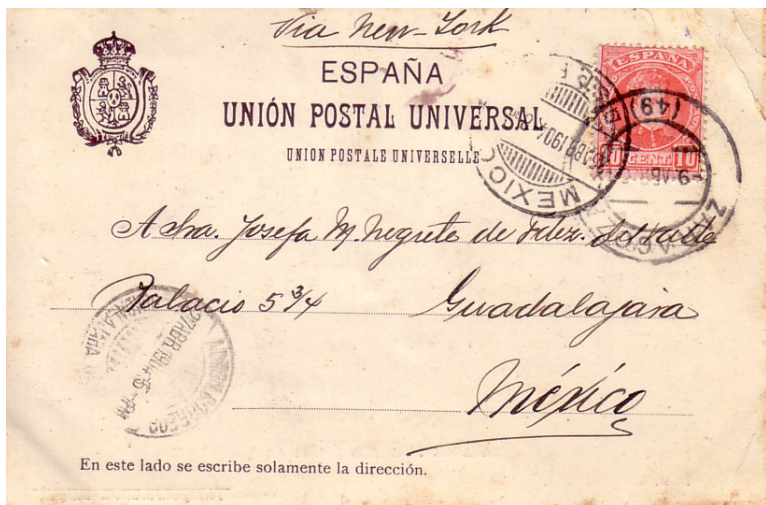 Via New-York
ESPAÑA
UNIÓN POSTAL UNIVERSAL
UNION POSTALE UNIVERSELLE
ESPAÑA
10 CENT 10
(49)
MEXICO
ZARAGOZA
A Sra. Josefa M. Negrete de Fdez. del Valle
Palacio 5 3/4 Guadalajara
27 ABR 1904
México
En este lado se escribe solamente la dirección.